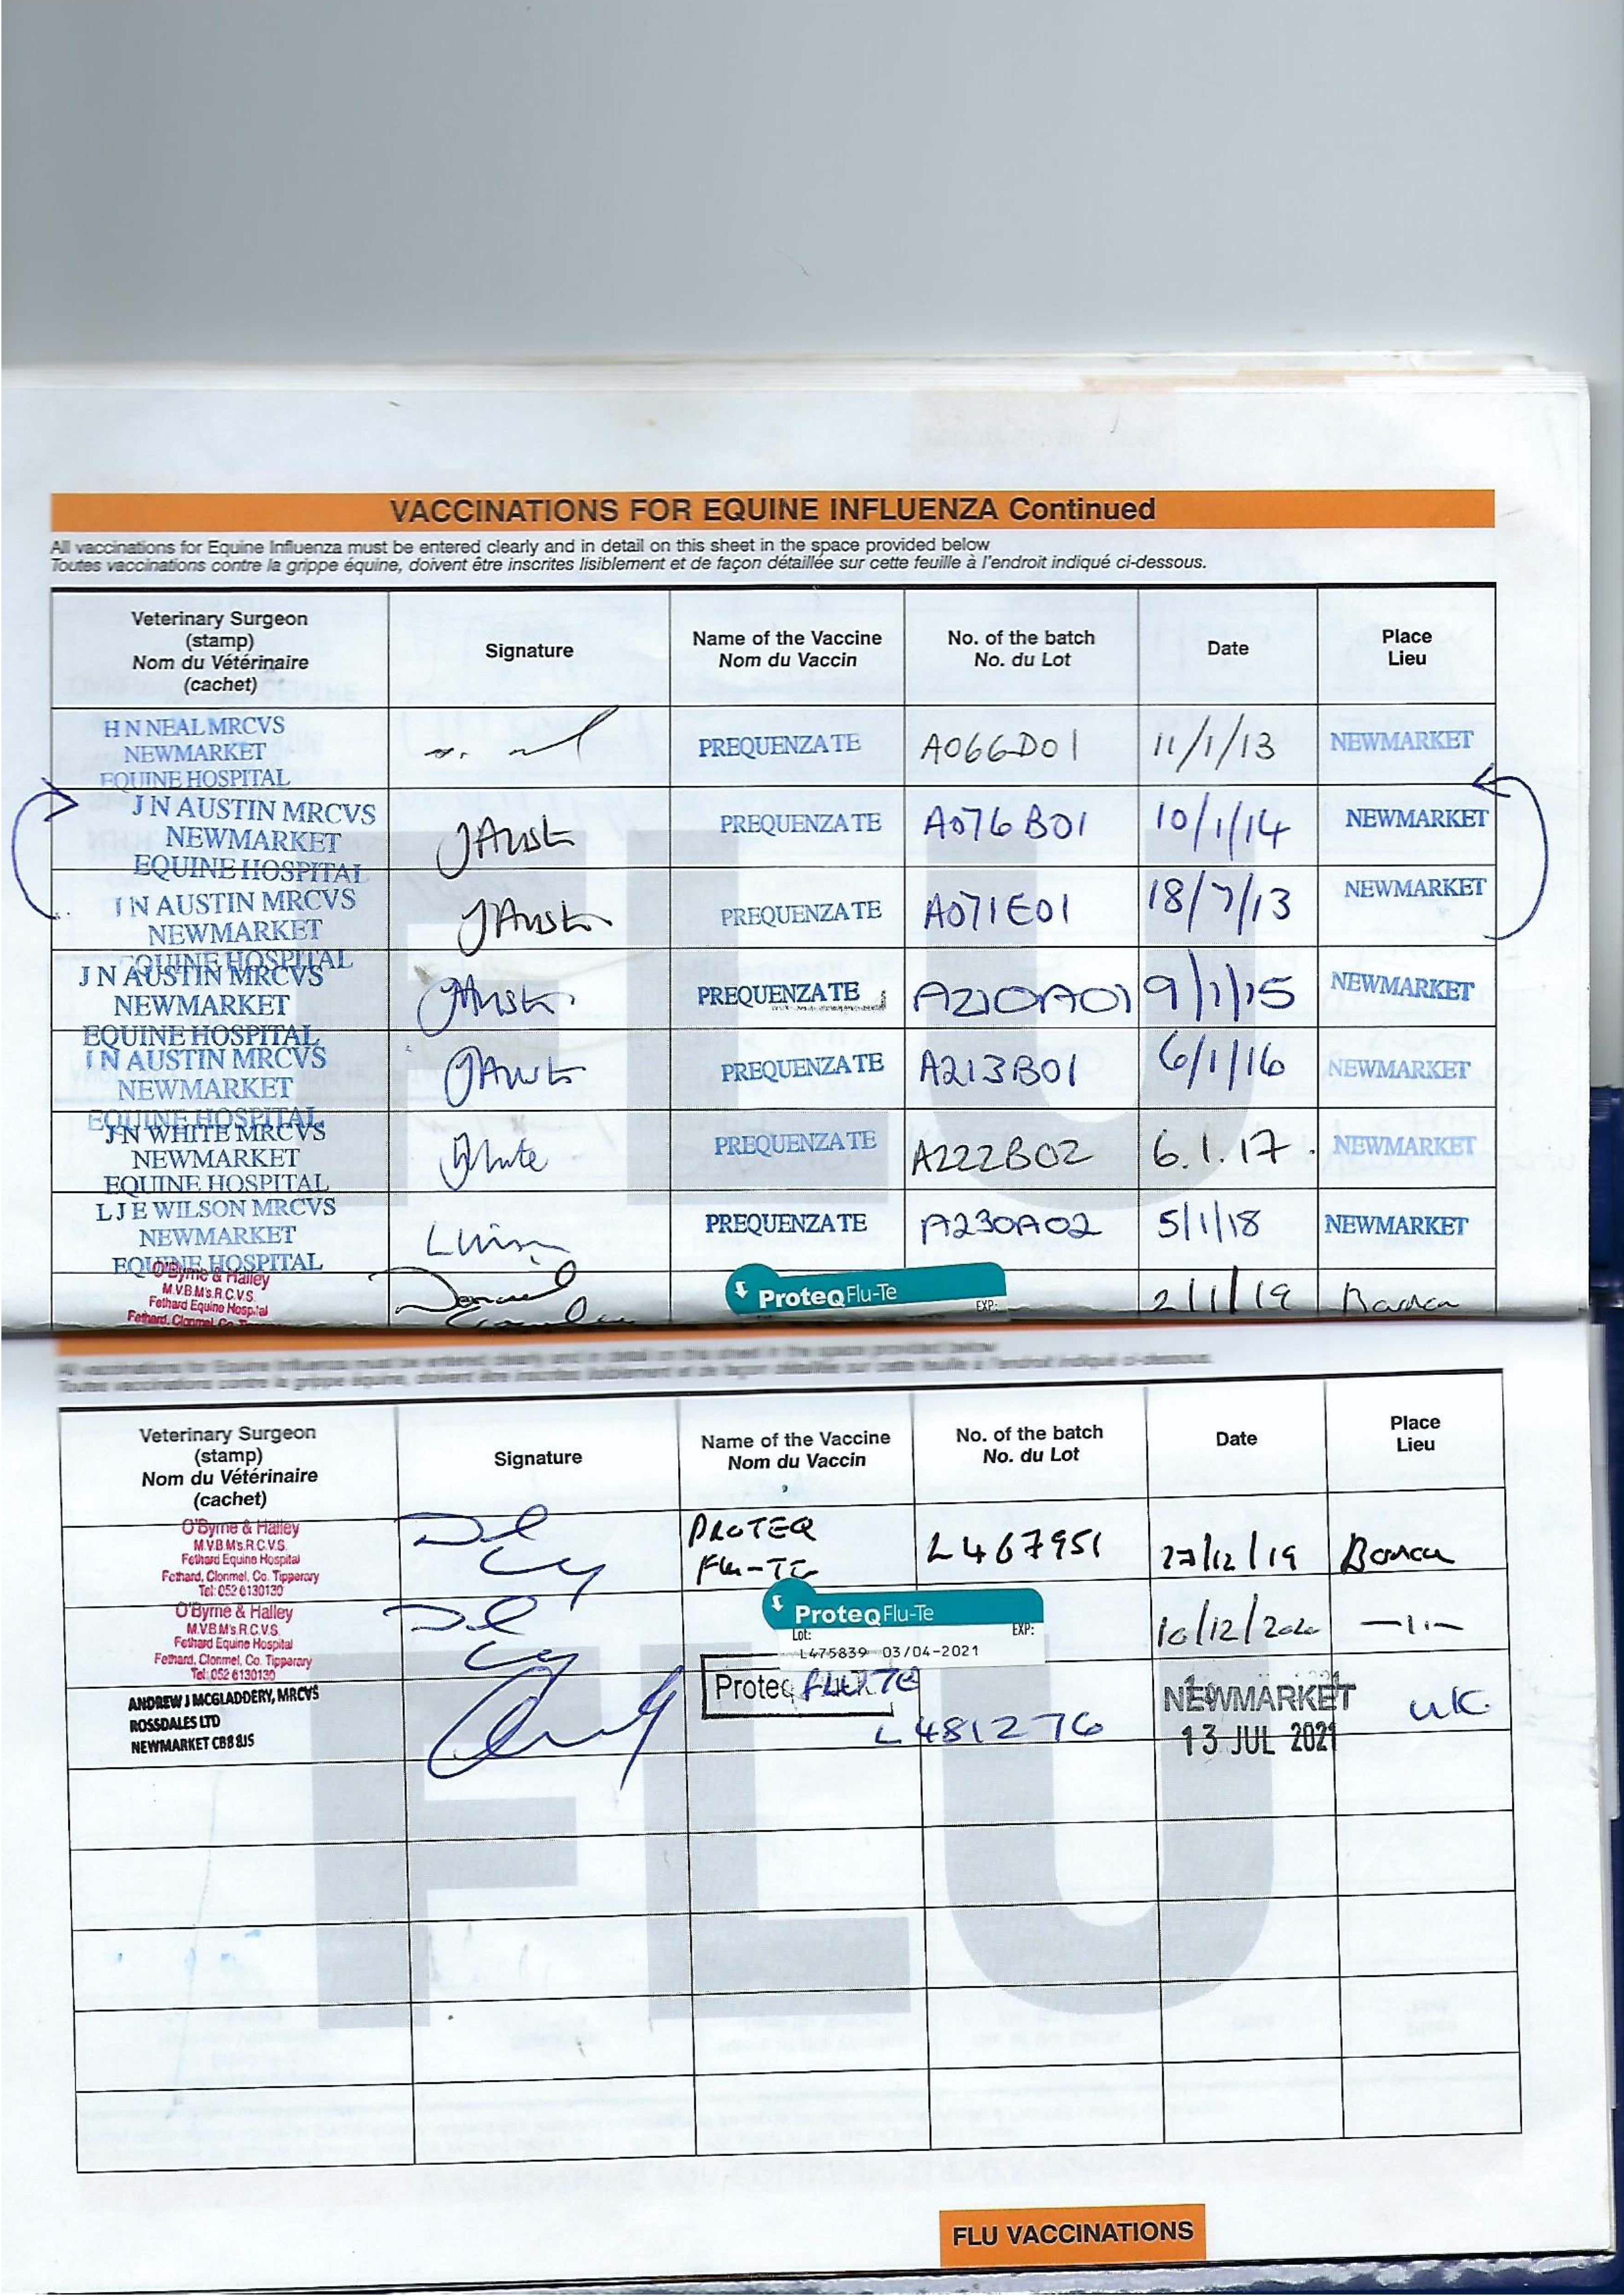 VACCINATIONS FOR EQUINE INFLUENZA Continued
All vaccinations for Equine Influenza must be entered clearly and in detail on this sheet in the space provided below
Toutes vaccinations contre la grippe équine, doivent être inscrites lisiblement et de façon détaillée sur cette feuille à l'endroit indiqué ci-dessous.
Veterinary Surgeon
(stamp)
Nom du Vétérinaire
(cachet)
Signature
Name of the Vaccine
Nom du Vaccin
No. of the batch
No. du Lot
Date
Place
Lieu
H N NEAL MRCVS
NEWMARKET
EQUINE HOSPITAL
PREQUENZA TE
A066D01
11/1/13
NEWMARKET
J N AUSTIN MRCVS
NEWMARKET
EQUINE HOSPITAL
JAust
PREQUENZA TE
A076B01
10/1/14
NEWMARKET
J N AUSTIN MRCVS
NEWMARKET
EQUINE HOSPITAL
JAust
PREQUENZA TE
A071E01
18/7/13
NEWMARKET
J N AUSTIN MRCVS
NEWMARKET
EQUINE HOSPITAL
JAust
PREQUENZA TE
A210A01
9/1/15
NEWMARKET
J N AUSTIN MRCVS
NEWMARKET
EQUINE HOSPITAL
JAust
PREQUENZA TE
A213B01
6/1/16
NEWMARKET
J N WHITE MRCVS
NEWMARKET
EQUINE HOSPITAL
PREQUENZA TE
A222B02
6.1.17.
NEWMARKET
L J E WILSON MRCVS
NEWMARKET
EQUINE HOSPITAL
PREQUENZA TE
A230A02
5/1/18
NEWMARKET
O'Byrne & Halley
M.V.B.M's.R.C.V.S.
Fethard Equine Hospital
Fethard, Clonmel, Co. Tipperary
ProteqFlu-Te
EXP:
2/1/19
FLU
All vaccinations for Equine Influenza must be entered clearly and in detail on this sheet in the space provided below
Toutes vaccinations contre la grippe équine, doivent être inscrites lisiblement et de façon détaillée sur cette feuille à l'endroit indiqué ci-dessous.
Veterinary Surgeon
(stamp)
Nom du Vétérinaire
(cachet)
Signature
Name of the Vaccine
Nom du Vaccin
No. of the batch
No. du Lot
Date
Place
Lieu
O'Byrne & Halley
M.V.B.M's.R.C.V.S.
Fethard Equine Hospital
Fethard, Clonmel, Co. Tipperary
Tel: 052 6130130
PROTEQ
Flu-TE
L467951
27/12/19
O'Byrne & Halley
M.V.B.M's.R.C.V.S.
Fethard Equine Hospital
Fethard, Clonmel, Co. Tipperary
Tel: 052 6130130
ProteqFlu-Te
Lot:
EXP:
L475839 03/04-2021
10/12/2020
—11—
ANDREW J MCGLADDERY, MRCVS
ROSSDALES LTD
NEWMARKET CB8 8JS
Proteq FLU TE
L481276
NEWMARKET
13 JUL 2021
UK.
FLU
FLU VACCINATIONS